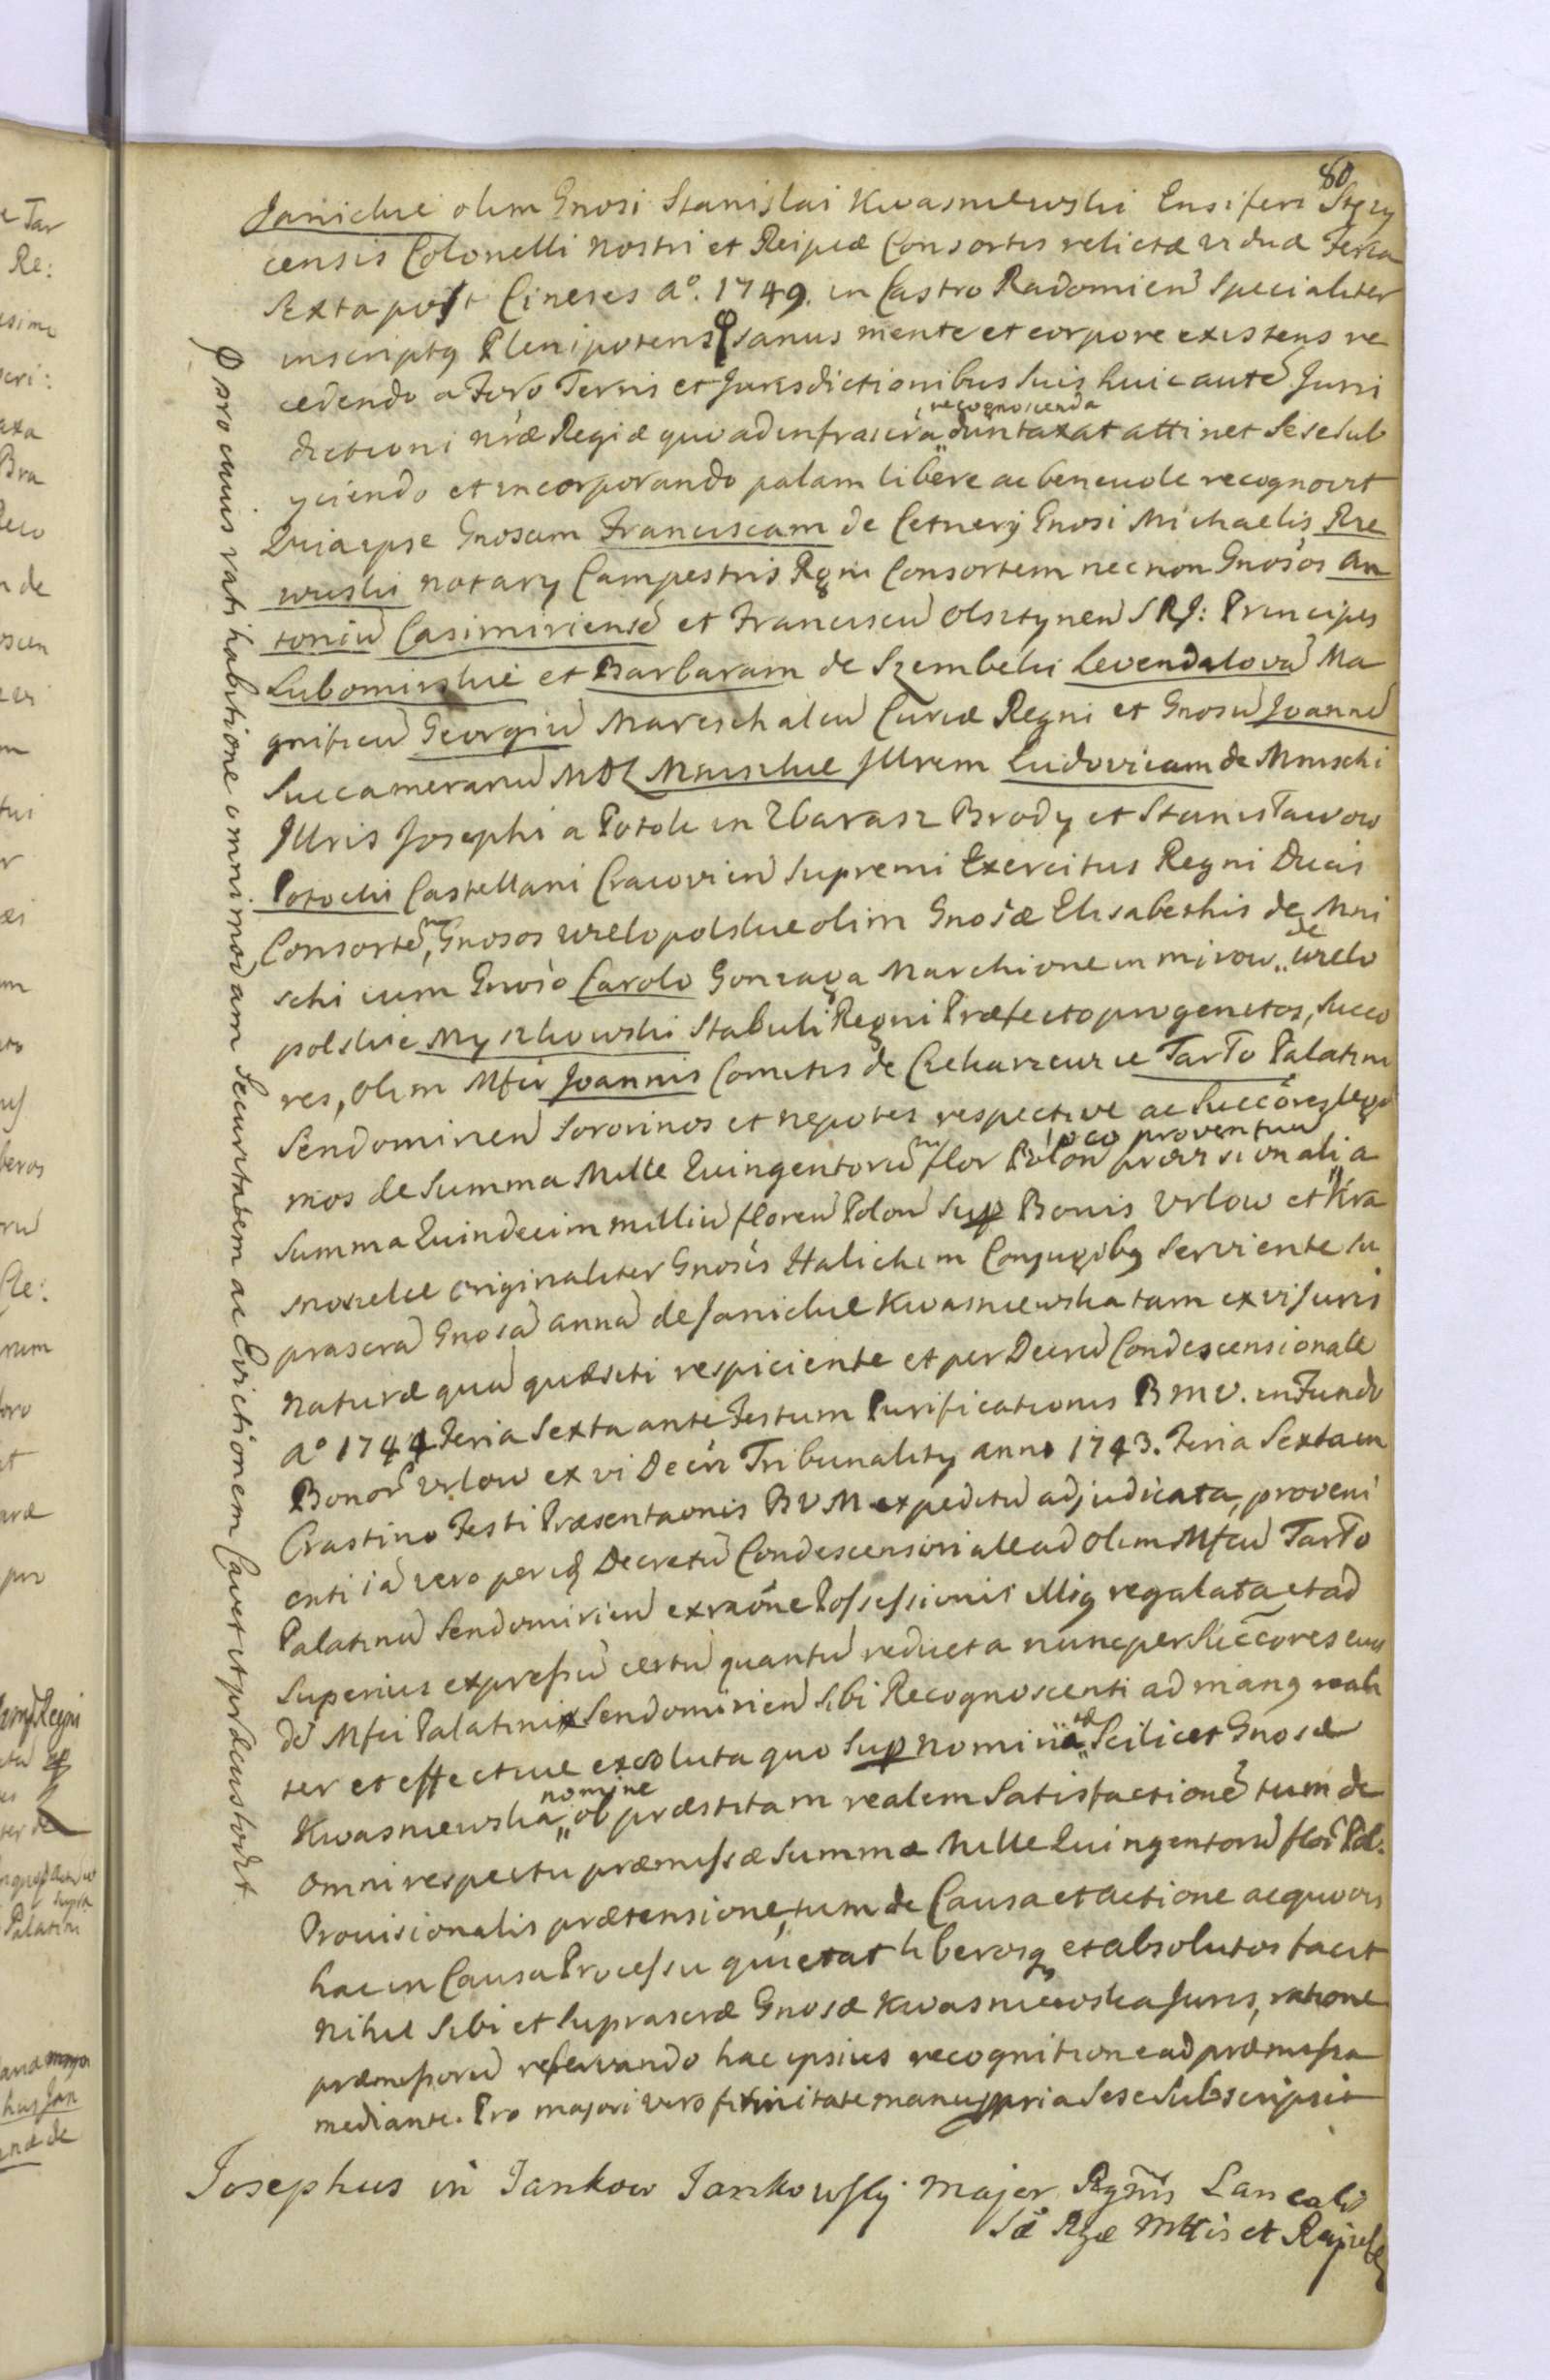 80
Janickie olim Gnosi Stanislai Kwasniewski Ensiferi Stęzy
censis Colonelli nostri et Reipcæ Consortis relictæ viduæ Feria
Sexta post Cineres A°. 1749. in Castro Radomien Specialiter
inscriptq Plenipotens sanus mente et corpore existens re
cedendo a Foro Terris et Jurisdictionibus Suis huic autē Juris
dictioni nræ Regiæ quo ad infrascra recognoscenda duntaxat attinet Sese Sub
yciendo et incorporando palam libere ac benevole recognovit
Quia ipse Gnosam Franciscam de Cetnery Gnosi Michaelis Rze
wuski notary Campestris Rgni Consortem nec non Gnosos An
toniū Casimiriensē et Franciscū Olsztynen S R J: Principes
Lubomirskie et Barbaram de Szembeki Levendalova Ma
gnificū Georgiū Mareschalcū Curiæ Regni et Gnosū Joannē
Succamerariū MDL Mniszkie Jllrem Ludovicam de Mnischi
Jllris Josephi a Potok in Zbarasz Brody et Stanisławow
Potocki Castellani Cracovien Supremi Exercitus Regni Ducis
Consortē, Gnosos Wielopolskie olim Gnosæ Elisabethis de Mni
schi cum Gnoso Carolo Gonzaga Marchione in mirow de Wielo
polskie Myszkowski Stabuli Regni Præfecto progenitos, Succo
res, olim Mfci Joannis Comitis de Czekarzewice Tarło Palatini
Sendomirien Sororinos et nepotes respective ac Succores legi
mos de Summa Mille Quingentorū flor Polon loco proventuū provisionali a
Summa Quindecim milliū floren Polon Sup Bonis Urlow et Kra
snosielce originaliter Gnosis Halickim Conjugibq Serviente Su
prascra Gnosa Anna de Janickie Kwasniewska tam ex vi Juris
naturæ quā quæsiti respiciente et per Decrū Condescensionale
A° 1744 Feria Sexta ante Festum Purificationis B M V. in Fundo
Bonor Urlow ex vi Decri Tribunalitq anno 1743. Feria Sexta in
Crastino Festi Præsentaonis B V M expeditū adjudicata, proveni
enti iā vero per iq Decretū Condescensionale ad olim Mfcū Tarło
Palatinū Sendomirien ex raone Possessionis illiq regulata et ad
Superius expressū certū quantū reducta nunc per Succores eius
dē Mfci Palatini Sendomirien Sibi Recognoscenti ad manq reali
ter et effective exsoluta quo Sup nomine Scilicet Gnosæ
Kwasniewska nomine ob præstitam realem Satisfactionē tum de
omni respectu præmissæ Summæ Mille Quingentorū flor Pol.
Provisionalis prætensione, tum de Causa et actione ac quovis
hac in Causa Processu quietat liberosq et absolutos facit
nihil Sibi et Suprascræ Gnosæ Kwasniewska Juris, ratione
præmissorū reservando hac ipsius recognitione ad præmissa
mediante. Pro majori vero firmitate manu ppria Sese Subscripsit
Josephus in Jankow Jankowsky Major Rgmis Lanealis
Sæ Rgæ Mttis et Reipcæ
Pro cuius rati habitione omnimodam Securitatem ac Evictionem Cavet et præcustodit.